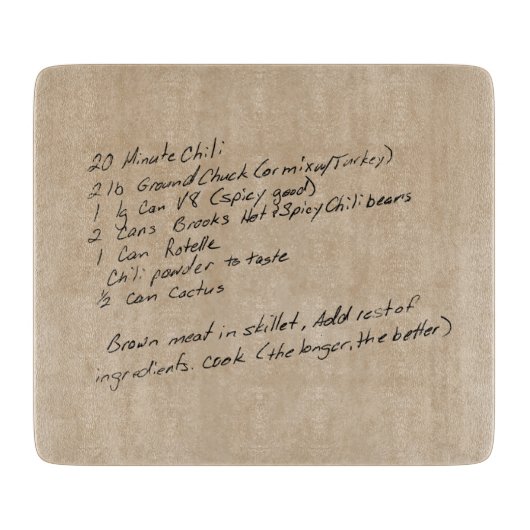 20 Minute Chili
2 lb Ground Chuck (or mix w/Turkey)
1 lg Can V8 (spicy good)
2 Cans Brooks Hot & Spicy Chili beans
1 Can Rotelle
Chili powder to taste
½ can Cactus
Brown meat in skillet, Add rest of
ingredients. Cook (the longer, the better)